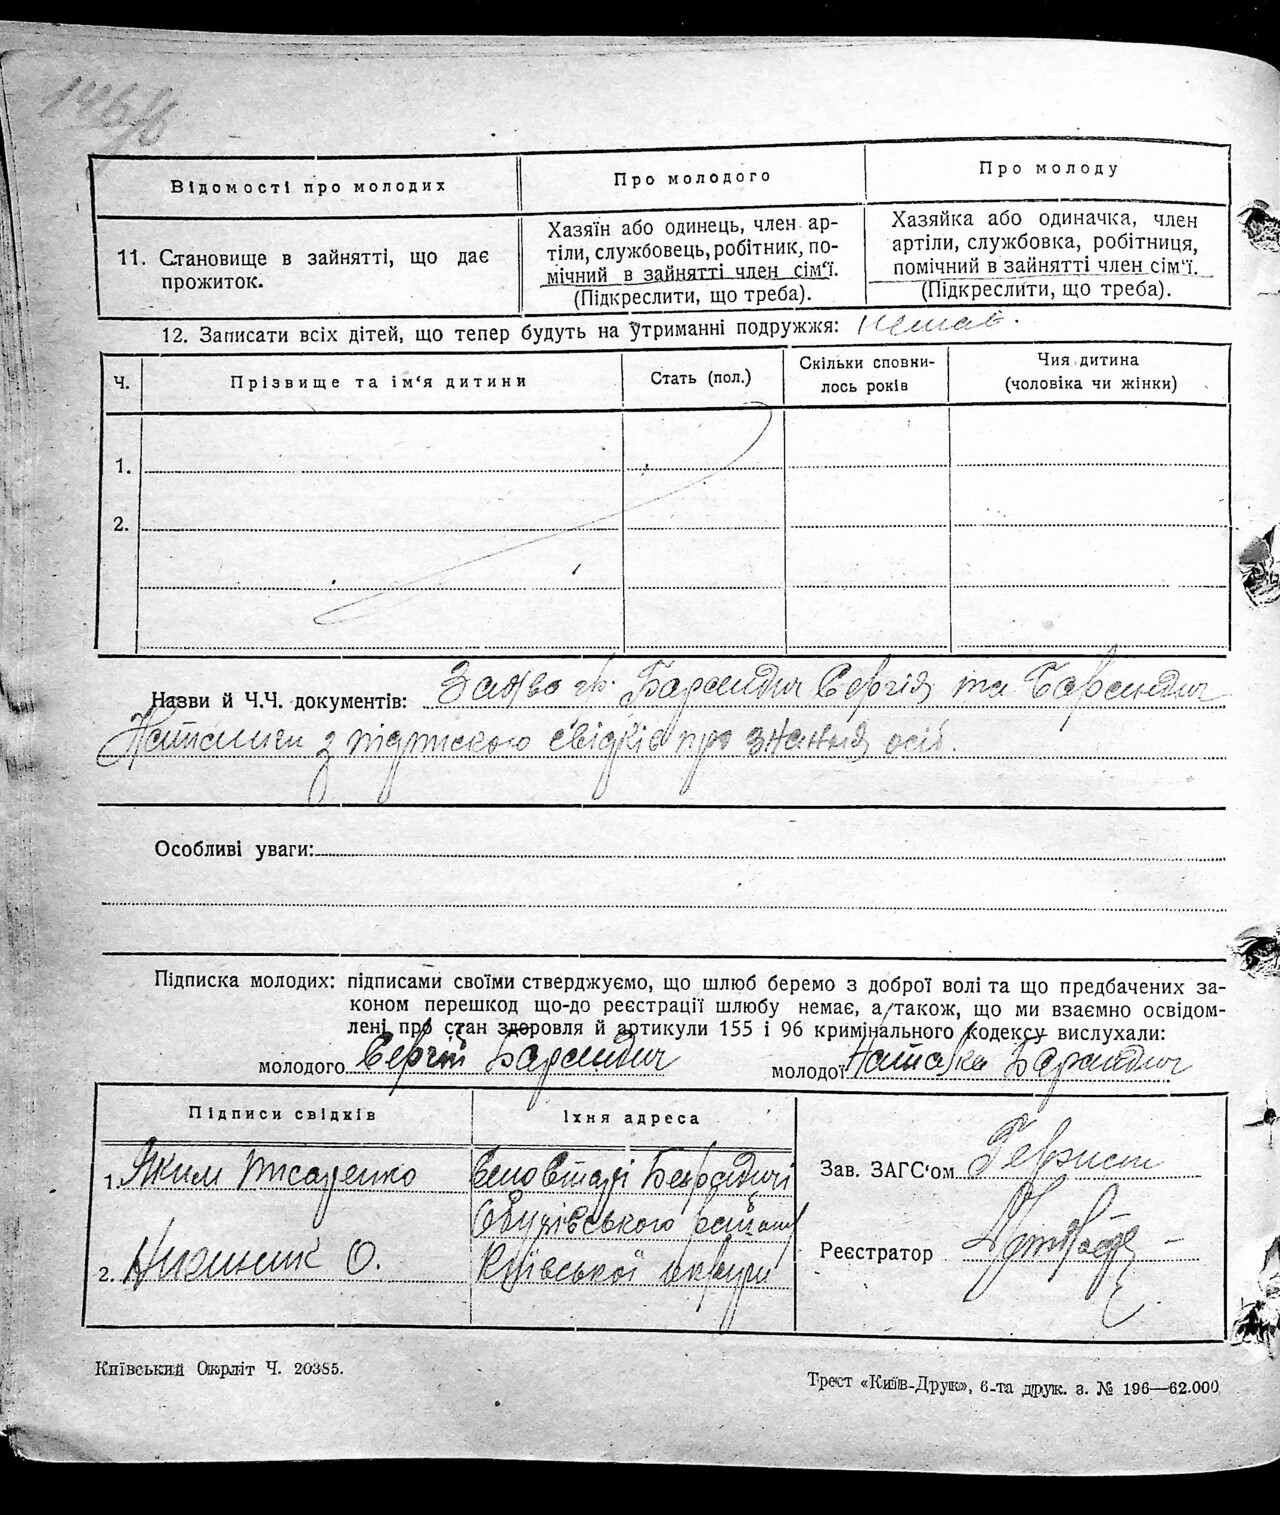 Відомості про молодих
Про молодого
Про молоду
11. Становище в зайнятті, що дає
прожиток.
Хазяїн або одинець, член ар-
тіли, службовець, робітник, по-
мічний в зайнятті член сім'ї.
(Підкреслити, що треба).
Хазяйка або одиначка, член
артіли, службовка, робітниця,
помічний в зайнятті член сім'ї.
(Підкреслити, що треба).
12. Записати всіх дітей, що тепер будуть на утриманні подружжя: немає.
Ч.
Прізвище та ім'я дитини
Стать (пол.)
Скільки сповни-
лось років
Чия дитина
(чоловіка чи жінки)
1.
2.
Назви й Ч.Ч. документів: Заява гр. Барандич Сергія та Барандич
Наталии з підпискою свідків про знання осіб.
Особливі уваги:
Підписка молодих: підписами своїми стверджуємо, що шлюб беремо з доброї волі та що предбачених за-
коном перешкод що-до реєстрації шлюбу немає, а також, що ми взаємно освідом-
лені про стан здоровля й артикули 155 і 96 кримінального кодексу вислухали:
молодого Сергій Барандич молодої Наталка Барандич
Підписи свідків
Їхня адреса
1. Яким
Село Старі Безрадичі
Обухівського району
2. О.
Київської округи
Зав. ЗАГС'ом
Реєстратор
Київський Окрліт Ч. 20385.
Трест «Київ-Друк», 6-та друк. з. № 196—62.000